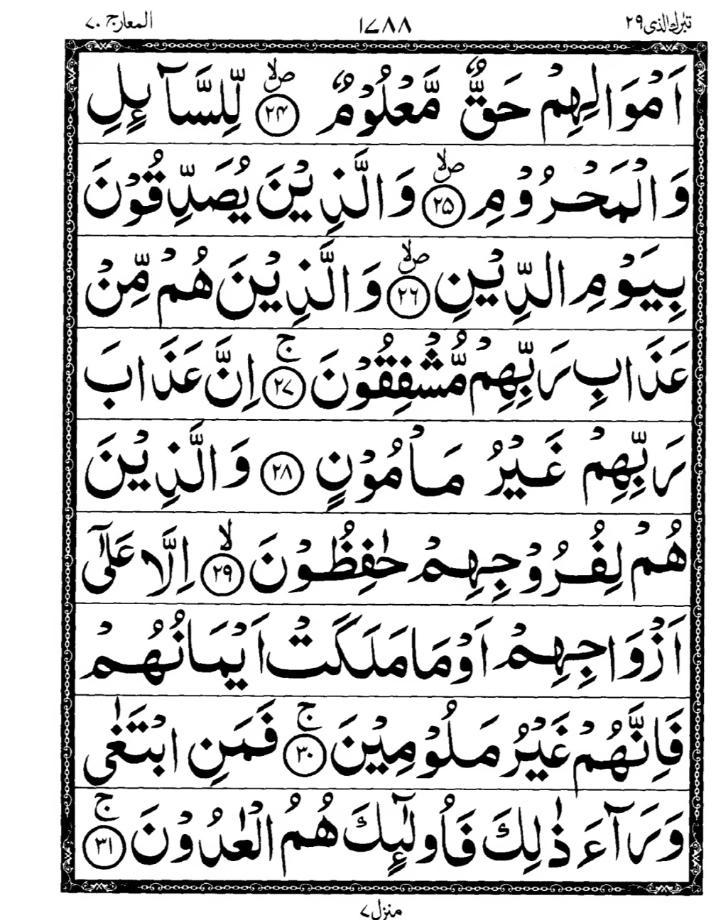 تبٰرك الذی ٢٩ ١٧٨٨ المعارج ٧٠
اَمْوَالِهِمْ حَقٌّ مَّعْلُوْمٌ ۪ۙ‏ ﴿۲۴﴾ لِّلسَّآئِلِ
وَالْمَحْرُوْمِ ۪ۙ‏ ﴿۲۵﴾ وَالَّذِيْنَ يُصَدِّقُوْنَ
بِيَوْمِ الدِّيْنِ ۪ۙ‏ ﴿۲۶﴾ وَالَّذِيْنَ هُمْ مِّنْ
عَذَابِ رَبِّهِمْ مُّشْفِقُوْنَ ۚ‏ ﴿۲۷﴾ اِنَّ عَذَابَ
رَبِّهِمْ غَيْرُ مَاْمُوْنٍ ﴿۲۸﴾ وَالَّذِيْنَ
هُمْ لِفُرُوْجِهِمْ حٰفِظُوْنَ ۙ‏ ﴿۲۹﴾ اِلَّا عَلٰٓى
اَزْوَاجِهِمْ اَوْ مَا مَلَكَتْ اَيْمَانُهُمْ
فَاِنَّهُمْ غَيْرُ مَلُوْمِيْنَ ۚ‏ ﴿۳۰﴾ فَمَنِ ابْتَغٰى
وَرَآءَ ذٰلِكَ فَاُولٰٓئِكَ هُمُ الْعٰدُوْنَ ۚ‏ ﴿۳۱﴾
منزل ٧